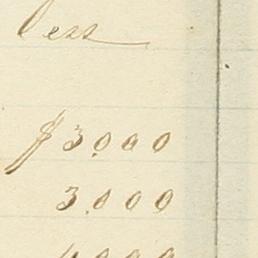 less
$3.000
3.000